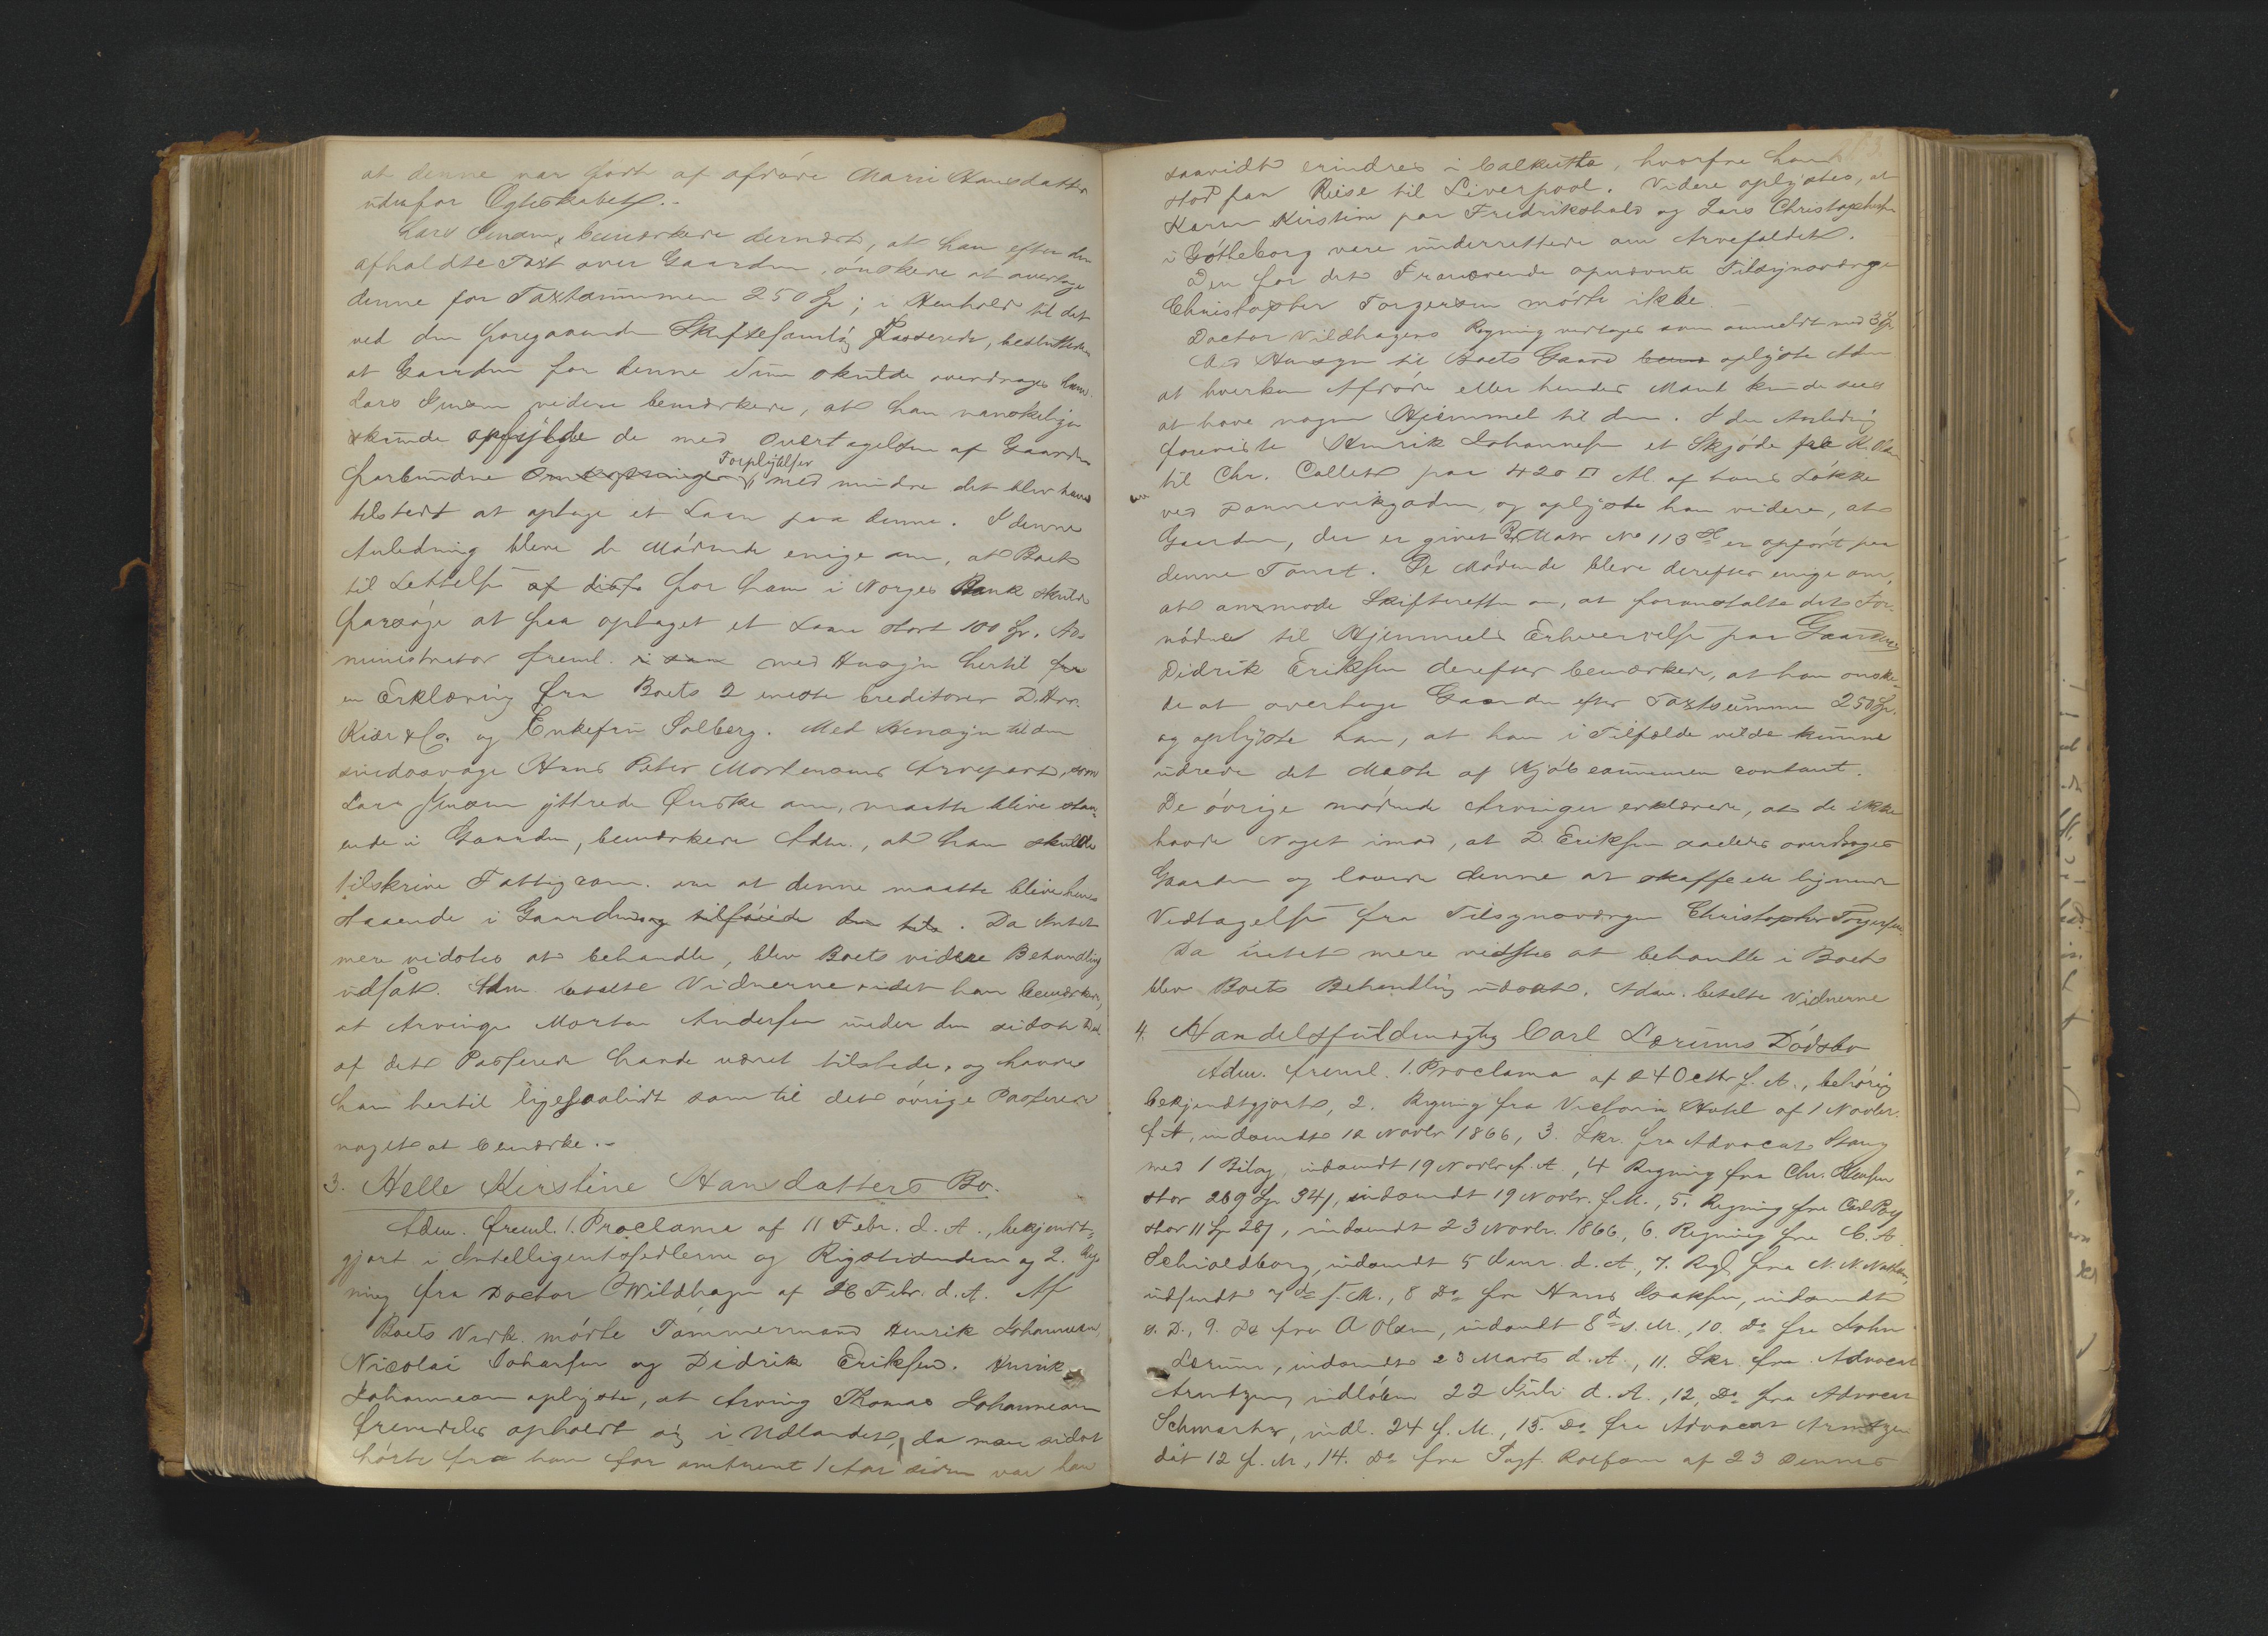 at denne var født af afdøde Marie Hansdatter
udenfor Ægteskabet.-
Lars Jensen bemærkede dernæst, at han efter den
afholdte Taxt over Gaarden, ønskede at overtage
denne for Taxtsummen 250 Sp; i Henhold til det
ved den foregaaende Skiftesamlg Passerede, besluttedes
at Gaarden for denne Sum skulde overdrages ham.
Lars Jensen videre bemærkede, at han vanskeligen
kunde opfylde de med Overtagelsen af Gaarden
Forpligtelser
forbundne med mindre det blev ham
tilstedt at optage et Laan paa denne. I denne
Anledning bleve de Mødende enige om, at Boet
til Lettelse af dette for ham i Norges Bank skulde
forsøge at faa optaget et Laan stort 100 Sp. Ad-
ministrator freml. med Hensyn hertil
en Erklæring fra Boets 2 eneste Creditorer D. Hrr.
Kiær & Co. og Enkefru Solberg. Med Hensyn til den
sindssvage Hans Peter Mortensens Arvepart, som
Lars Jensen yttrede Ønske om, maatte blive staa-
ende i Gaarden, bemærkede Adm., at han skulde
tilskrive Fattigcom. om at denne maatte blive
staaende i Gaarden. Da Intet
mere vidstes at behandle, blev Boets videre Behandling
udsat. Adm. betalte Vidnerne, idet han bemærkede,
at Arvinge Morten Andersen under den sidste Del
af det Passerede havde været tilstede, og havde
han hertil ligesaalidt som til det øvrige Passerede
noget at bemærke.-
3. Helle Kirstine Hansdatters Bo.
Adm. freml. 1. Proclama af 11 Febr. d. A., bekjendt-
gjort i Intelligentssedlerne og Rigstidenden og 2. Reg-
ning fra Doctor Wildhagen af 26 Febr. d. A. Af
Boets Vedk. mødte Tømmermand Henrik Johannesen,
Nicolai Johansen og Didrik Eriksen. Henrik
Johannesen oplyste, at Arving Thomas Johannesen
fremdeles opholdt sig i Udlandet, da man sidst
hørte fra ham for omtrent 1 Aar siden var han
saavidt erindres i Calkutta, hvorfra han
stod paa Reise til Liverpool. Videre oplystes, at
Karen Kirstine paa Fredrikshald og Lars Christophersen
i Gøtheborg vare underrettede om Arvefaldet.
Den for det Fraværende opnævnte Tilsynsværge
Christopher Torgersen mødte ikke.
Doctor Vildhagens Regning vedtages som anmeldt med 3 Sp
Med Hensyn til Boets Gaard oplyste Adm
at hverken Afdøde eller hendes Mand kunde sees
at have nogen Hjemmel til den. I den Anledng
foreviste Henrik Johannesen et Skjøde fra
til Chr. Collett paa 420 □ Al. af hans Løkke
ved Dannevikgaden, og oplyste han videre, at
Gaarden, der er givet Matr No 113 er opført paa
denne Tomt. De Mødende bleve derefter enige om,
at anmode Skifteretten om, at foranstalte det For-
nødne til Hjemmels Erhvervelse paa Gaarden.
Didrik Eriksen derefter bemærkede, at han ønske-
de at overtage Gaarden efter Taxtsummen 250 Sp.
og oplyste han, at han i Tilfælde vilde kunne
udrede det Meste af Kjøbesummen contant.
De øvrige mødende Arvinger erklærede, at de ikke
havde Noget imod, at D. Eriksen saaledes overdroges
Gaarden og lovede denne at skaffe en lignende
Vedtagelse fra Tilsynsværgen Christopher Torgersen.
Da intet mere vidstes at behandle i Boet
blev Boets Behandling udsat. Adm. betalte Vidnerne
4. Handelsfuldmægtig Carl Lærums Dødsbo
Adm. freml. 1. Proclama af 24 Octbr f. A., behørig
bekjendtgjort, 2. Regning fra Victoria Hotel af 1 Novbr.
f. A, indsendt 12 Novbr 1866, 3. Skr. fra Advocat Stang
med 1 Bilag, indsendt 19 Novbr f. A., 4 Regning fra Chr.
stor 269 Sp 34/, indsendt 19 Novbr. f. A., 5. Regning fra Carl
stor 11 Sp 28/, indsendt 23 Novbr. 1866, 6. Regning fra C. A.
Schioldborg, indsendt 5 Janr. d. A., 7. Regn. fra N. N.
indsendt 7de s. M., 8 Do fra Hans Isaksen, indsendt
s. D., 9. Do fra A Olsen, indsendt 8d s. M., 10. Do fra John
Lærum, indsendt 23 Marts d. A., 11. Skr. fra Advocat
Arntzen, indløben 22 Juli d. A., 12, Do fra Advocat
Schwartz, indl. 24 f. M., 13. Do fra Advocat Arntzen
dat 12 f. M, 14. Do fra Sagf. Rolfsen af 23 Dennes